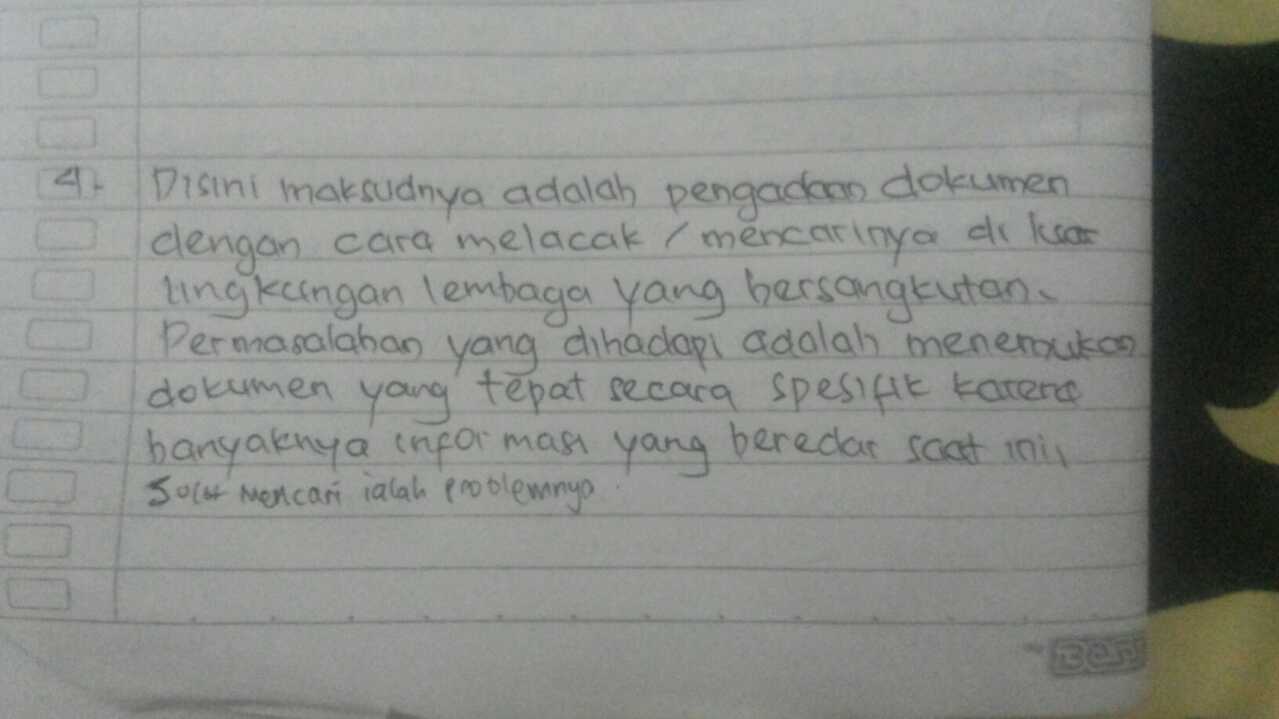 4. Disini maksudnya adalah pengadaan dokumen
dengan cara melacak / mencarinya di luar
lingkungan lembaga yang bersangkutan.
Permasalahan yang dihadapi adalah menemukan
dokumen yang tepat secara spesifik karena
banyaknya informasi yang beredar saat ini,
mencari ialah problemnya.